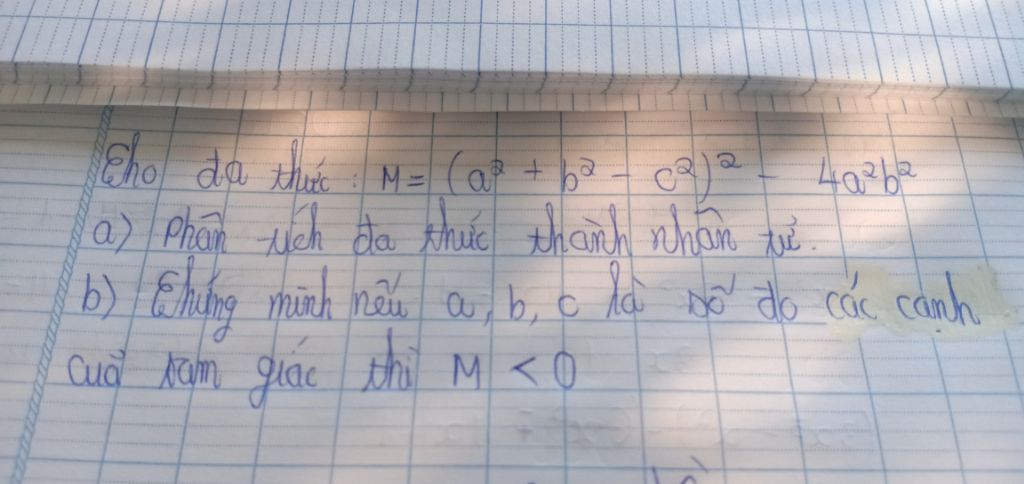 Cho đa thức: M = (a² + b² - c²)² - 4a²b²
a) Phân tích đa thức thành nhân tử.
b) Chứng minh nếu a, b, c là số đo các cạnh
cuả tam giác thì M < 0